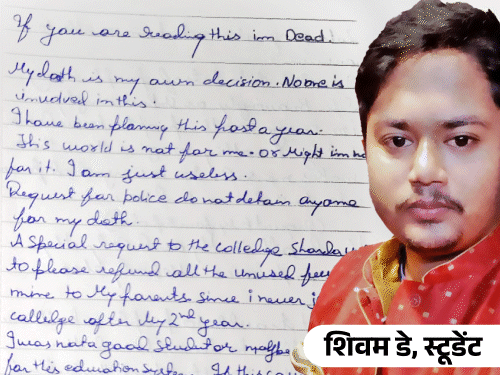 If you are reading this im Dead.
My dath is my own decision. No one is
involved in this.
I have been planning this past a year.
This world is not for me. Or Might im no
for it. I am just useless.
Request for police do not detain anyone
for my dath.
A Special request to the colledge Sharda
to please refund all the unused fee
mine to My parents since i never
colledge after My 2nd year.
I was not a good student or maybe
for this education system. If this
शिवम डे, स्टूडेंट